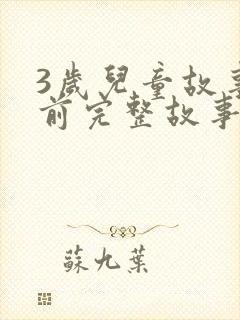 3歲兒童故事
前完整故事
蘇九葉